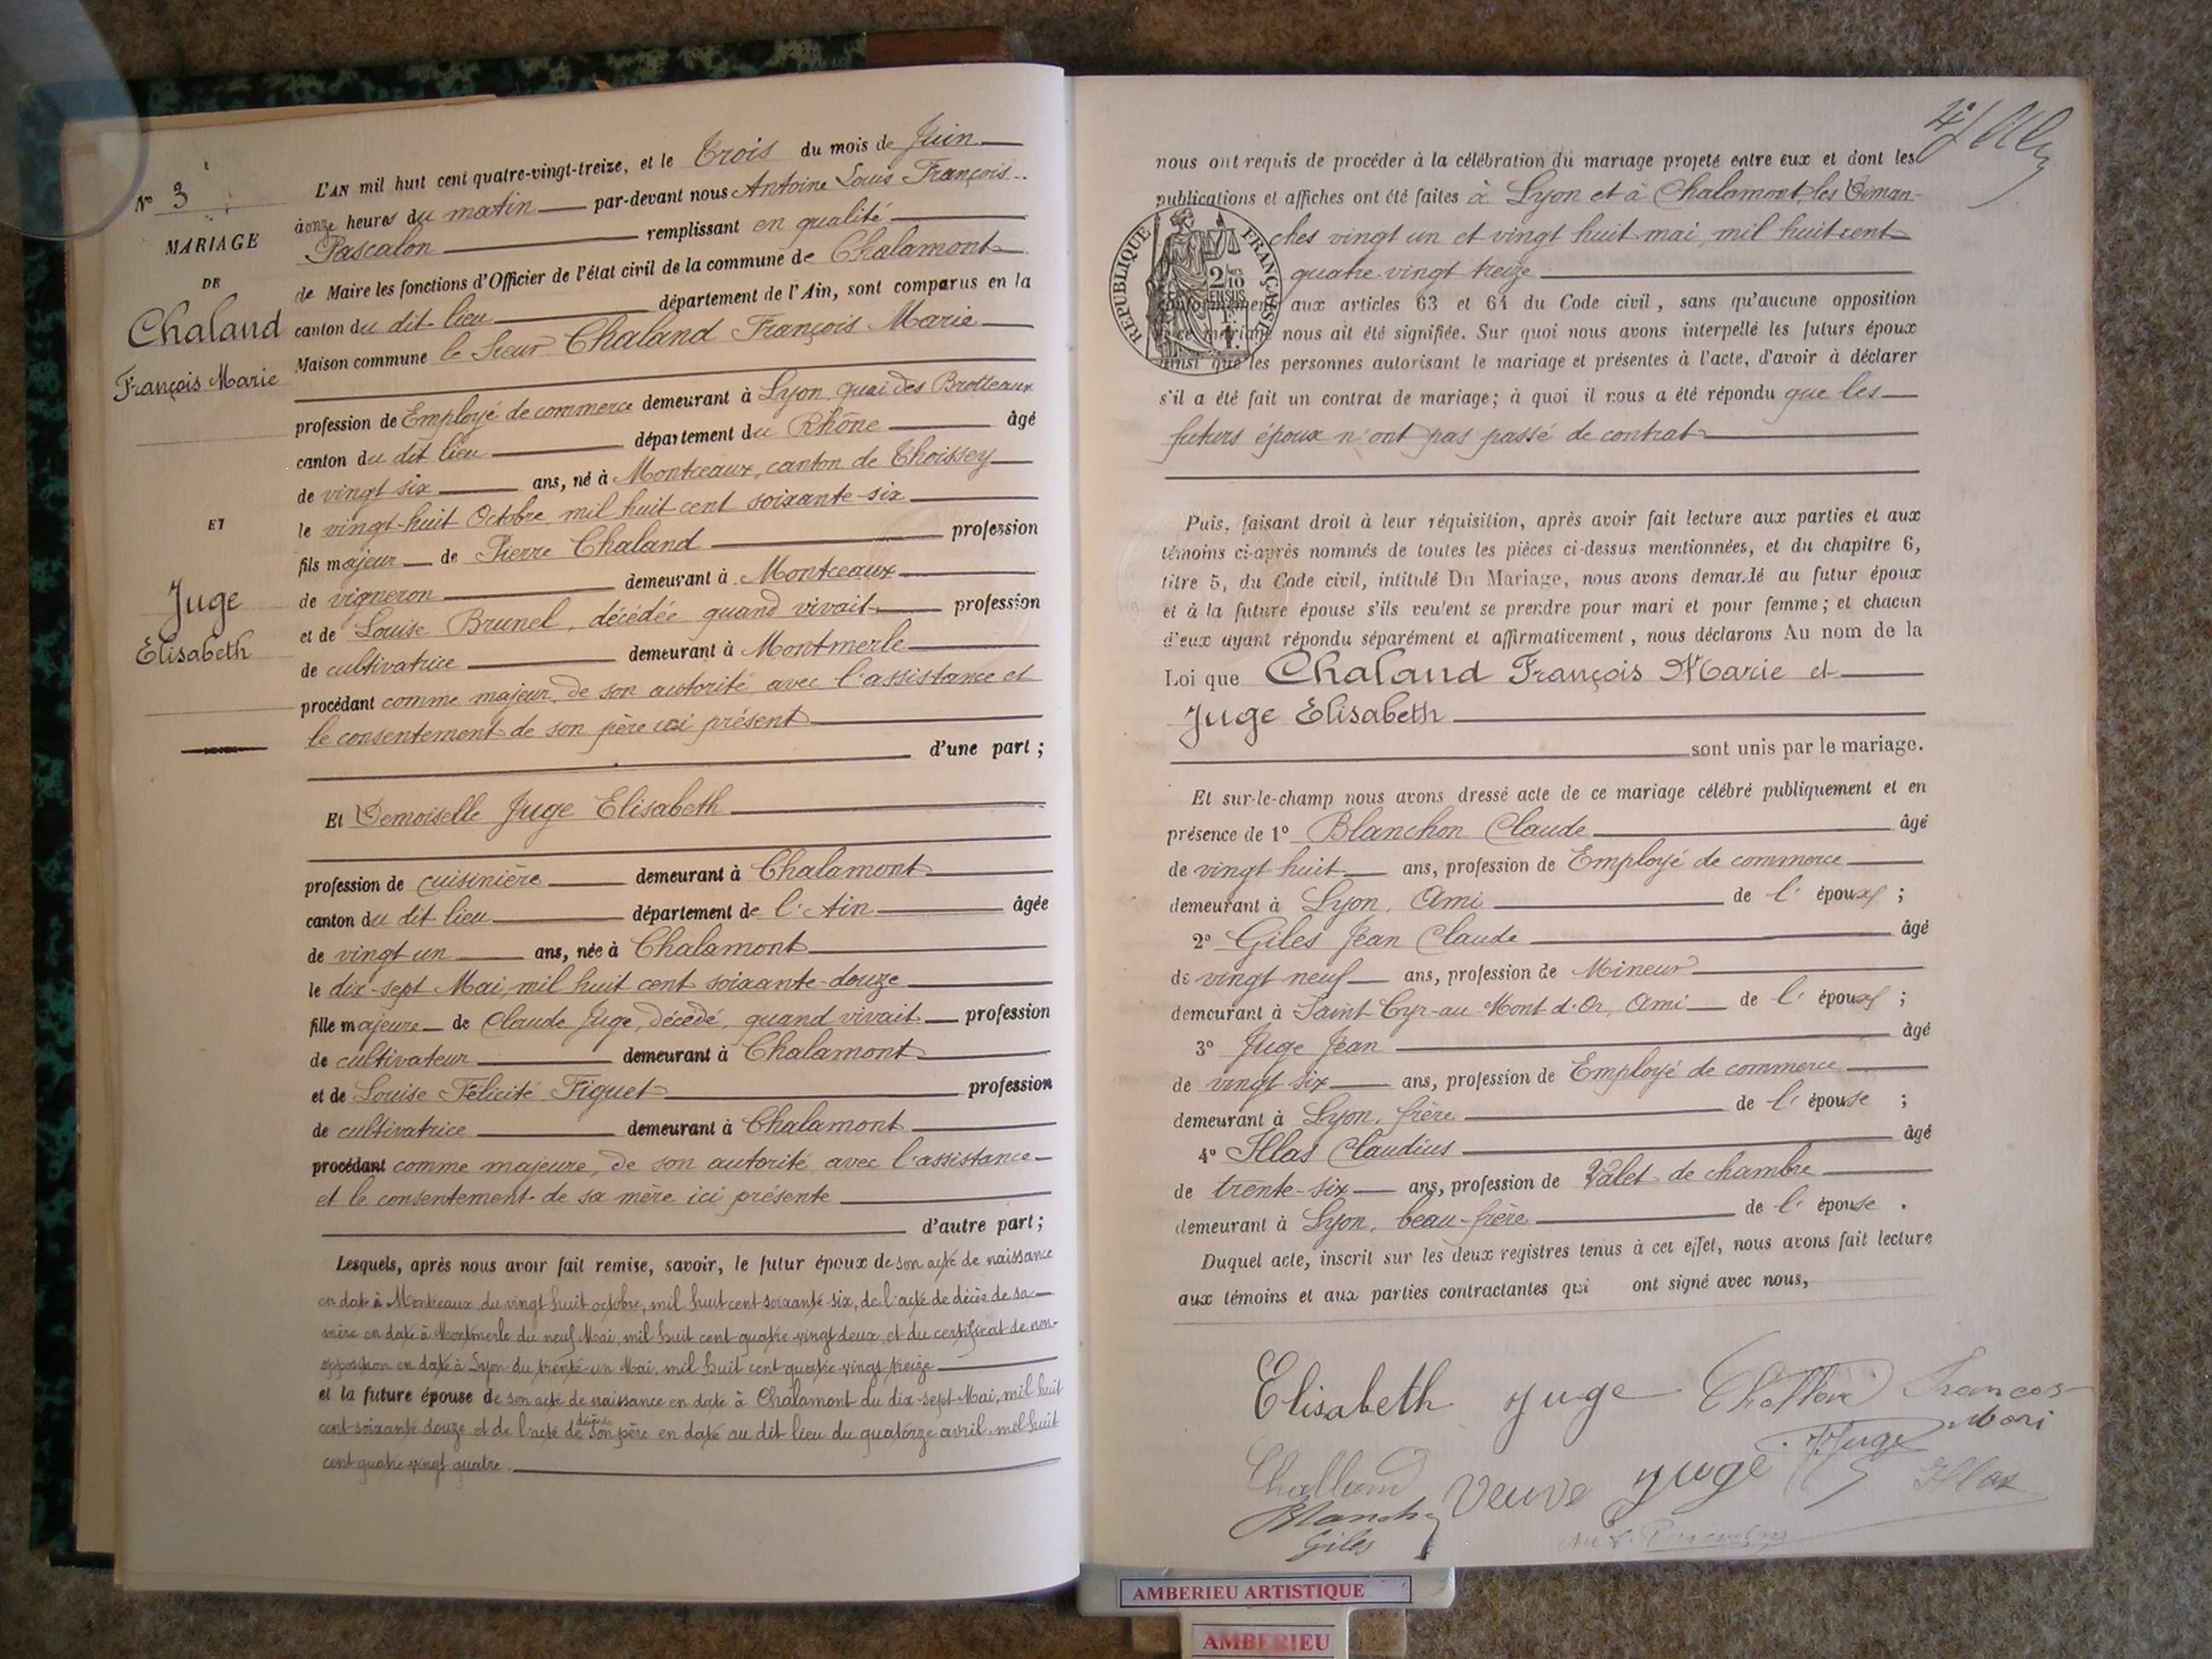 N° 3
MARIAGE
DE
Chaland
François Marie
ET
Juge
Elisabeth
L'AN mil huit cent quatre-vingt-treize, et le Trois du mois de Juin
à onze heures du matin par-devant nous Antoine Louis François
Pascalon remplissant en qualité
de Maire les fonctions d'Officier de l'état civil de la commune de Chalamont
canton du dit lieu département de l'Ain, sont comparus en la
Maison commune le Sieur Chaland François Marie
profession de Employé de commerce demeurant à Lyon, quai des Brotteaux
canton du dit lieu département du Rhône âgé
de vingt six ans, né à Montceaux, canton de Thoissey
le vingt-huit Octobre, mil huit cent soixante-six
fils majeur de Pierre Chaland profession
de vigneron demeurant à Montceaux
et de Louise Brunel, décédée quand vivait profession
de cultivatrice demeurant à Montmerle
procédant comme majeur, de son autorité avec l'assistance et
le consentement de son père ici présent
d'une part ;
Et Demoiselle Juge Elisabeth
profession de cuisinière demeurant à Chalamont
canton du dit lieu département de l'Ain âgée
de vingt un ans, née à Chalamont
le dix-sept Mai, mil huit cent soixante-douze
fille majeure de Claude Juge, décédé, quand vivait profession
de cultivateur demeurant à Chalamont
et de Louise Félicité Figuet profession
de cultivatrice demeurant à Chalamont
procédant comme majeure, de son autorité avec l'assistance
et le consentement de sa mère ici présente
d'autre part ;
Lesquels, après nous avoir fait remise, savoir, le futur époux de son acte de naissance
en date à Montceaux du vingt huit octobre, mil huit cent soixante-six, de l'acte de décès de sa
mère en date à Montmerle du neuf Mai, mil huit cent quatre vingt deux, et du certificat de non-
opposition en date à Lyon du trente-un Mai, mil huit cent quatre-vingt-treize
et la future épouse de son acte de naissance en date à Chalamont du dix-sept Mai, mil huit
cent soixante douze et de l'acte de décès de son père en date au dit lieu du quatorze avril, mil huit
cent quatre vingt quatre.
nous ont requis de procéder à la célébration du mariage projeté entre eux et dont les
publications et affiches ont été faites à Lyon et à Chalamont, les Diman-
ches vingt un et vingt huit mai, mil huit cent
quatre vingt treize
RÉPUBLIQUE FRANÇAISE
2/10 EN SUS
conformément aux articles 63 et 64 du Code civil, sans qu'aucune opposition
à ce mariage nous ait été signifiée. Sur quoi nous avons interpellé les futurs époux
ainsi que les personnes autorisant le mariage et présentes à l'acte, d'avoir à déclarer
s'il a été fait un contrat de mariage ; à quoi il nous a été répondu que les
futurs époux n'ont pas passé de contrat
Puis, faisant droit à leur réquisition, après avoir fait lecture aux parties et aux
témoins ci-après nommés de toutes les pièces ci-dessus mentionnées, et du chapitre 6,
titre 5, du Code civil, intitulé Du Mariage, nous avons demandé au futur époux
et à la future épouse s'ils veulent se prendre pour mari et pour femme ; et chacun
d'eux ayant répondu séparément et affirmativement, nous déclarons Au nom de la
Loi que Chaland François Marie et
Juge Elisabeth
sont unis par le mariage.
Et sur-le-champ nous avons dressé acte de ce mariage célébré publiquement et en
présence de 1° Blanchon Claude âgé
de vingt huit ans, profession de Employé de commerce
demeurant à Lyon, Ami de l' époux ;
2° Giles Jean Claude âgé
de vingt neuf ans, profession de Mineur
demeurant à Saint Cyr-au-Mont d'Or, Ami de l' époux ;
3° Juge Jean âgé
de vingt six ans, profession de Employé de commerce
demeurant à Lyon, frère de l' épouse ;
4° Illas Claudius âgé
de trente-six ans, profession de Valet de chambre
demeurant à Lyon, beau-frère de l' épouse .
Duquel acte, inscrit sur les deux registres tenus à cet effet, nous avons fait lecture
aux témoins et aux parties contractantes qui ont signé avec nous,
Elisabeth Juge
Juge
Veuve Juge
Illas
Giles
AMBERIEU ARTISTIQUE
AMBERIEU